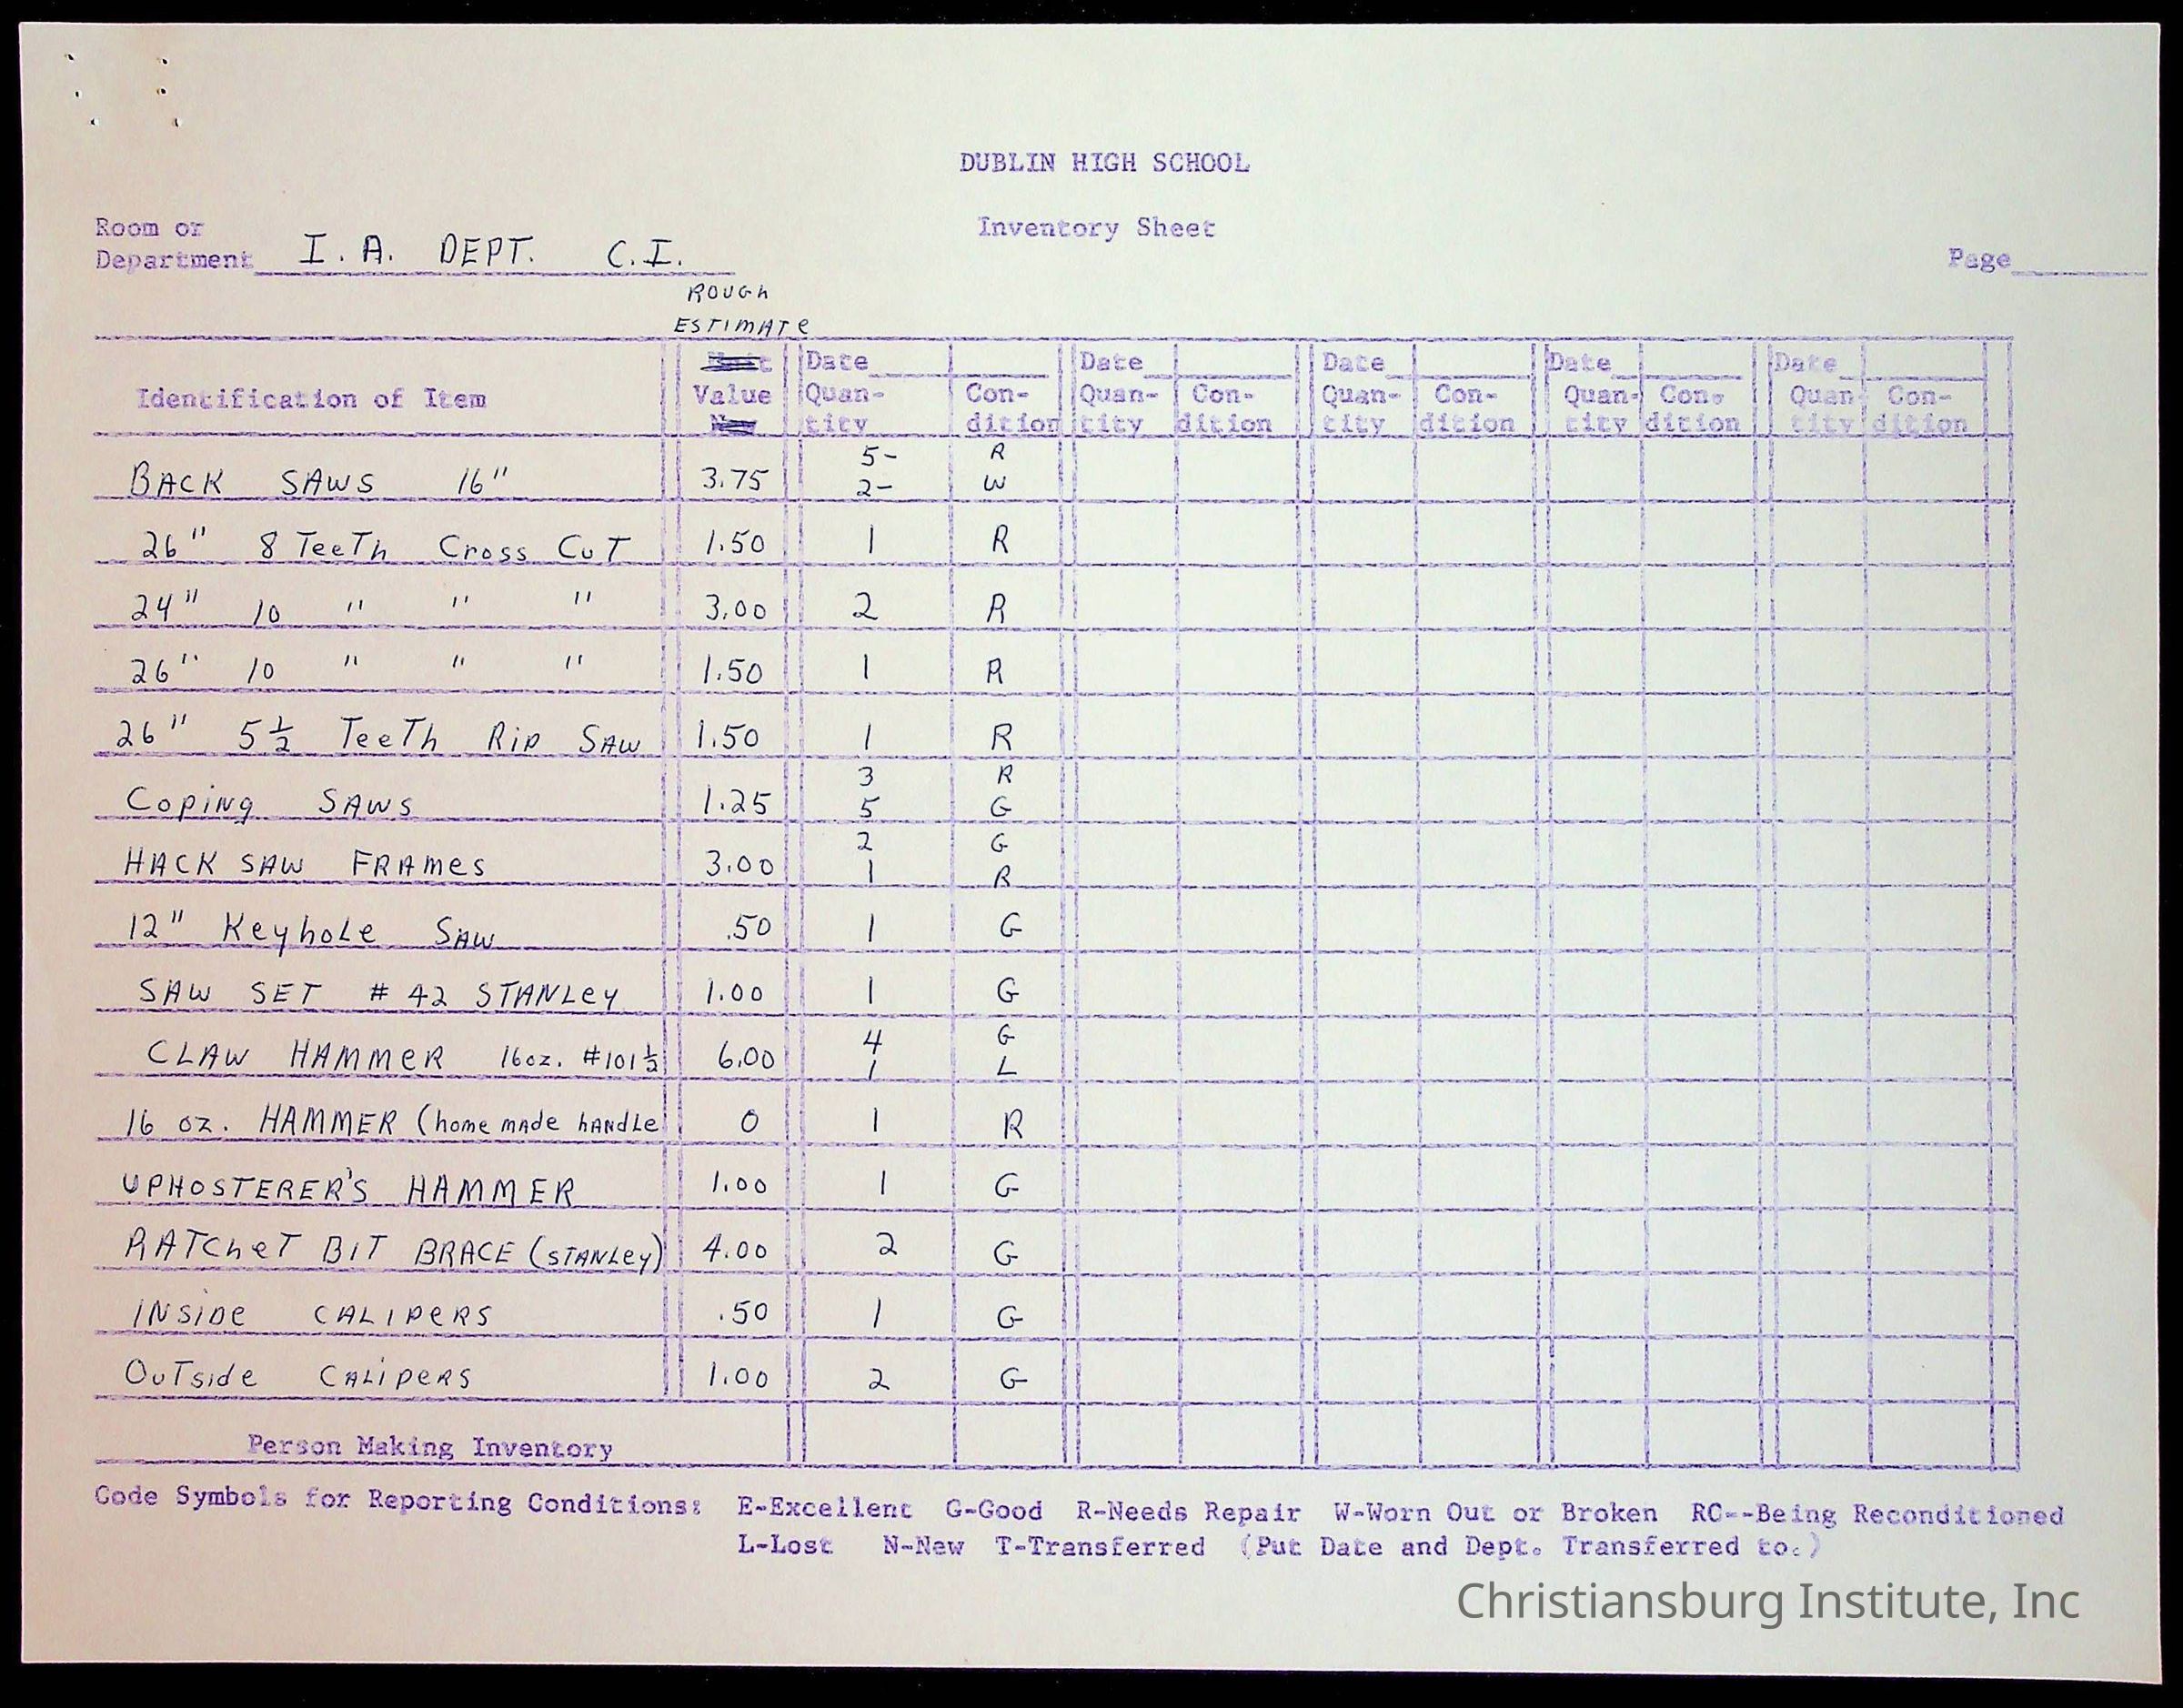 DUBLIN HIGH SCHOOL
Room or
Department I. A. DEPT. C.I.
Inventory Sheet
Page
ROUGH
ESTIMATE
Identification of Item Value Date Quan-tity Con-dition Date Quan-tity Con-dition Date Quan-tity Con-dition Date Quan-tity Con-dition Date Quan-tity Con-dition
BACK SAWS 16" 3.75 5- R
2- W
26" 8 TeeTh Cross CuT 1.50 1 R
24" 10 " " " 3.00 2 R
26" 10 " " " 1.50 1 R
26" 5½ TeeTh Rip SAW 1.50 1 R
Coping SAWS 1.25 3 R
5 G
HACK SAW FRAmes 3.00 2 G
1 R
12" KeyhoLe SAW .50 1 G
SAW SET # 42 STANLey 1.00 1 G
CLAW HAMMeR 16oz. #101½ 6.00 4 G
1 L
16 oz. HAMMER (home mAde hANdLe 0 1 R
UPHOSTERER'S HAMMER 1.00 1 G
RATCheT BIT BRACE (STANLey) 4.00 2 G
INSIDe CALIPeRS .50 1 G
OuTside CALIpeRS 1.00 2 G
Person Making Inventory
Code Symbols for Reporting Conditions: E-Excellent G-Good R-Needs Repair W-Worn Out or Broken RC--Being Reconditioned
L-Lost N-New T-Transferred (Put Date and Dept. Transferred to.)
Christiansburg Institute, Inc